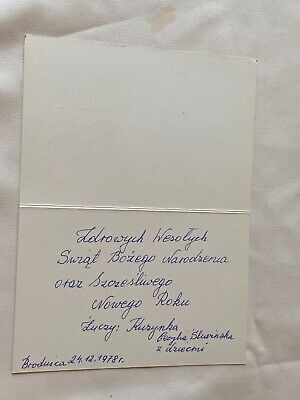 Zdrowych Wesołych
Świąt Bożego Narodzenia
oraz Szczęśliwego
Nowego Roku
życzy: Kuzynka
z dziećmi
Brodnica 24.12.1978r.